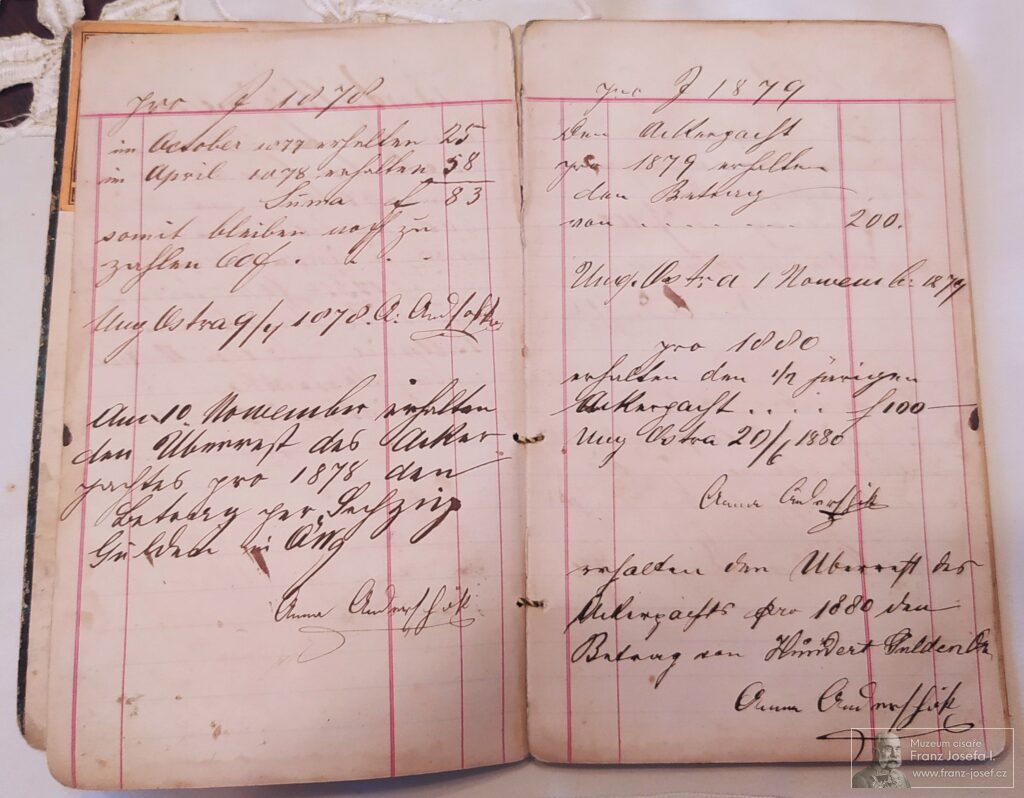 pro J 1878
im October 1877 erhalten 25
im April 1878 erhalten 58
Suma f 83
somit bleiben noch zu
zahlen 60f. . . .
Ung Ostra 9/ 1878. A.
Am 10. November erhalten
den Überrest des Acker
pachtes pro 1878 den
Betrag per Sechzig
Gulden in ÖW
Anna Anderschik
pro J 1879
Den Ackerpacht
pro 1879 erhalten
den Betrag
von . . . . . . . 200.
Ung. Ostra 1 Nowemb. 1879
pro 1880
erhalten den 1/2 järigen
Ackerpacht . . . . f 100—
Ung Ostra 20/6 1880
Anna Anderschik
erhalten den Uberrest des
Ackerpachts pro 1880 den
Betrag von Hundert Gulden
Anna Anderschik
Muzeum císaře
Franz Josefa I.
www.franz-josef.cz